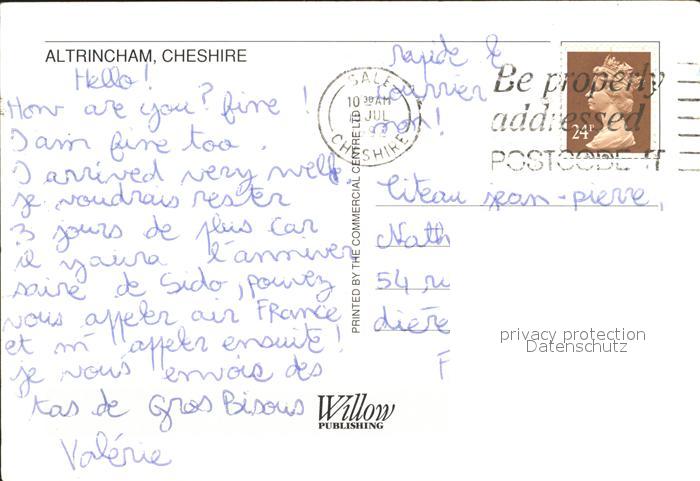 ALTRINCHAM, CHESHIRE
Hello!
How are you? fine!
I am fine too.
I arrived very well.
je voudrais rester
3 jours de plus car
il y aura l'anniver
saire de Sido, pouvez
vous appeler air FRance
et m'appeler ensuite!
je vous envois des
tas de Gros Bisous
Valérie
rapide le
courrier
non!
SALE
10 30 AM
JUL
CHESHIRE
Be properly
addressed
POSTCODE IT
24P
PRINTED BY THE COMMERCIAL CENTRE LTD
Jean-pierre,
Nath
54, ru
F
privacy protection
Datenschutz
Willow
PUBLISHING